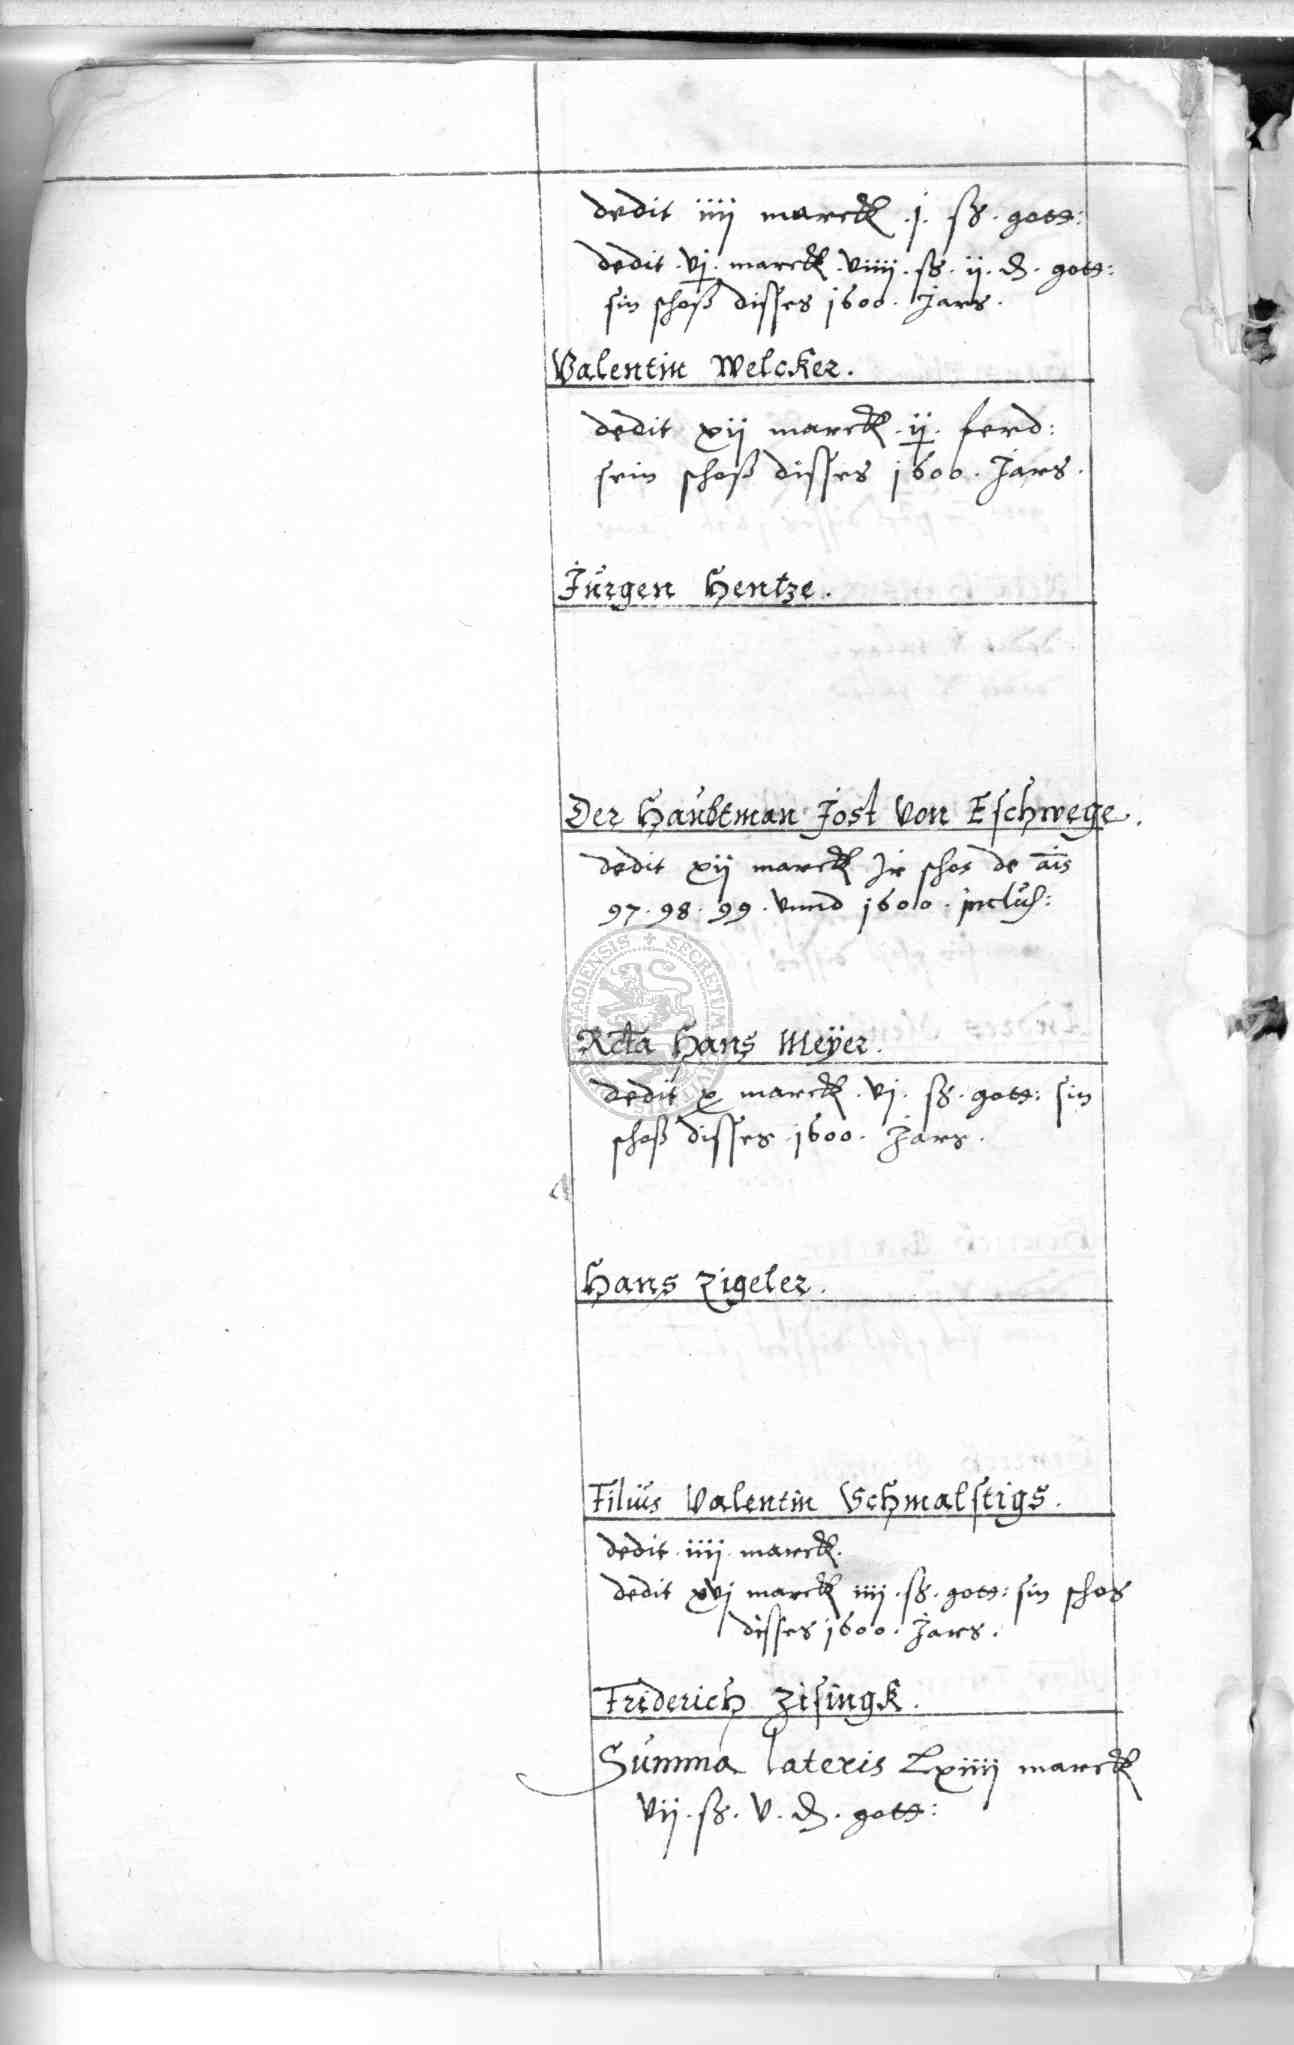 dedit iiij marck .j. ß. gott:
dedit . vj . marck . viiij . ß. ij . ₰. gott:
sin schoß disses 1600. Jars.
Valentin Welcker.
dedit xij marck . ij . ferd:
sein schoß disses 1600. Jars.
Jürgen Hentze.
Der Haubtman Jost von Eschwege.
dedit xij marck Jr schos de ais
97. 98. 99. vnnd 1600. inclus:
Rcta Hans Meÿer.
dedit x marck . vj . ß. gott: sin
schoß disses . 1600. Jars.
Hans Zigeler.
Filius Valentin Schmalstigs.
dedit . iiij . marck.
dedit xvj marck iiij . ß. gott: sin schos
disses 1600. Jars.
Friderich Zisingk.
Summa lateris Lxiiij marck
vij . ß. v . ₰. gott:
SECRETUM